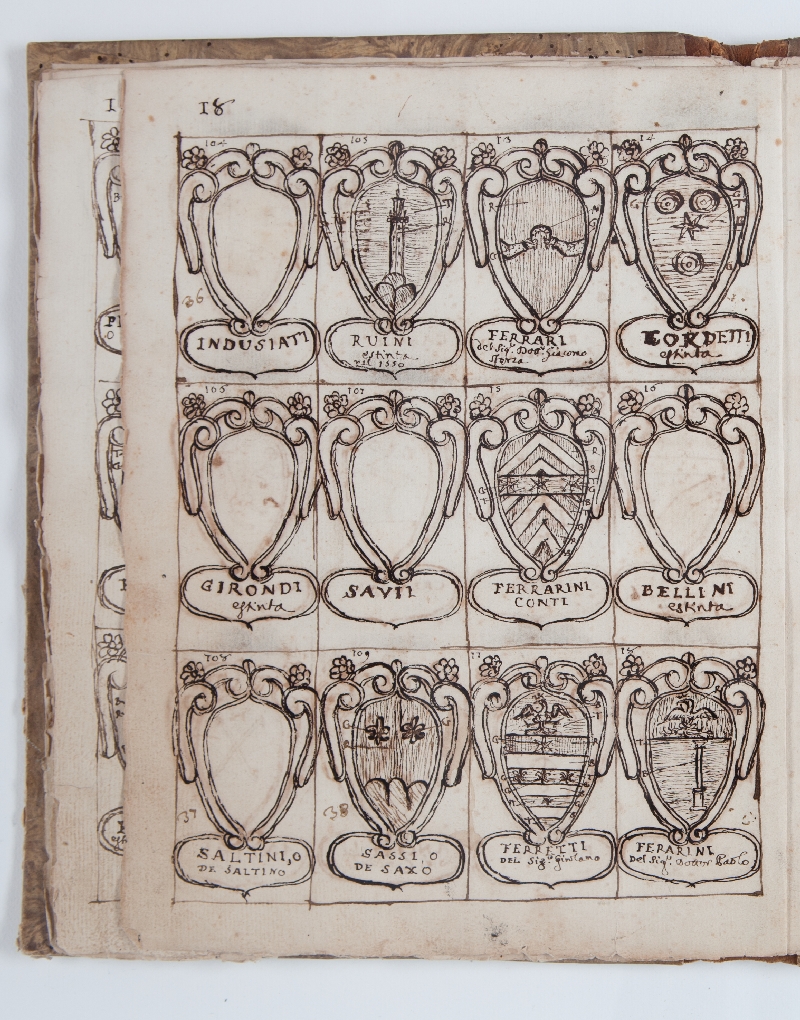 18
104
INDUSIATI
36
105
RUINI
estinta
nel 1550
13
FERRARI
del Sigr. Dottr. Giacomo
Sforza
14
estinta
106
GIRONDI
estinta
107
SAVII
15
FERRARINI
CONTI
16
BELLINI
estinta
108
SALTINI, O
DE SALTINO
37
109
SASSI, O
DE SAXO
38
17
FERRETTI
DEL Sigr. Girolamo
18
FERARINI
Del Sigr. Dottor Paolo